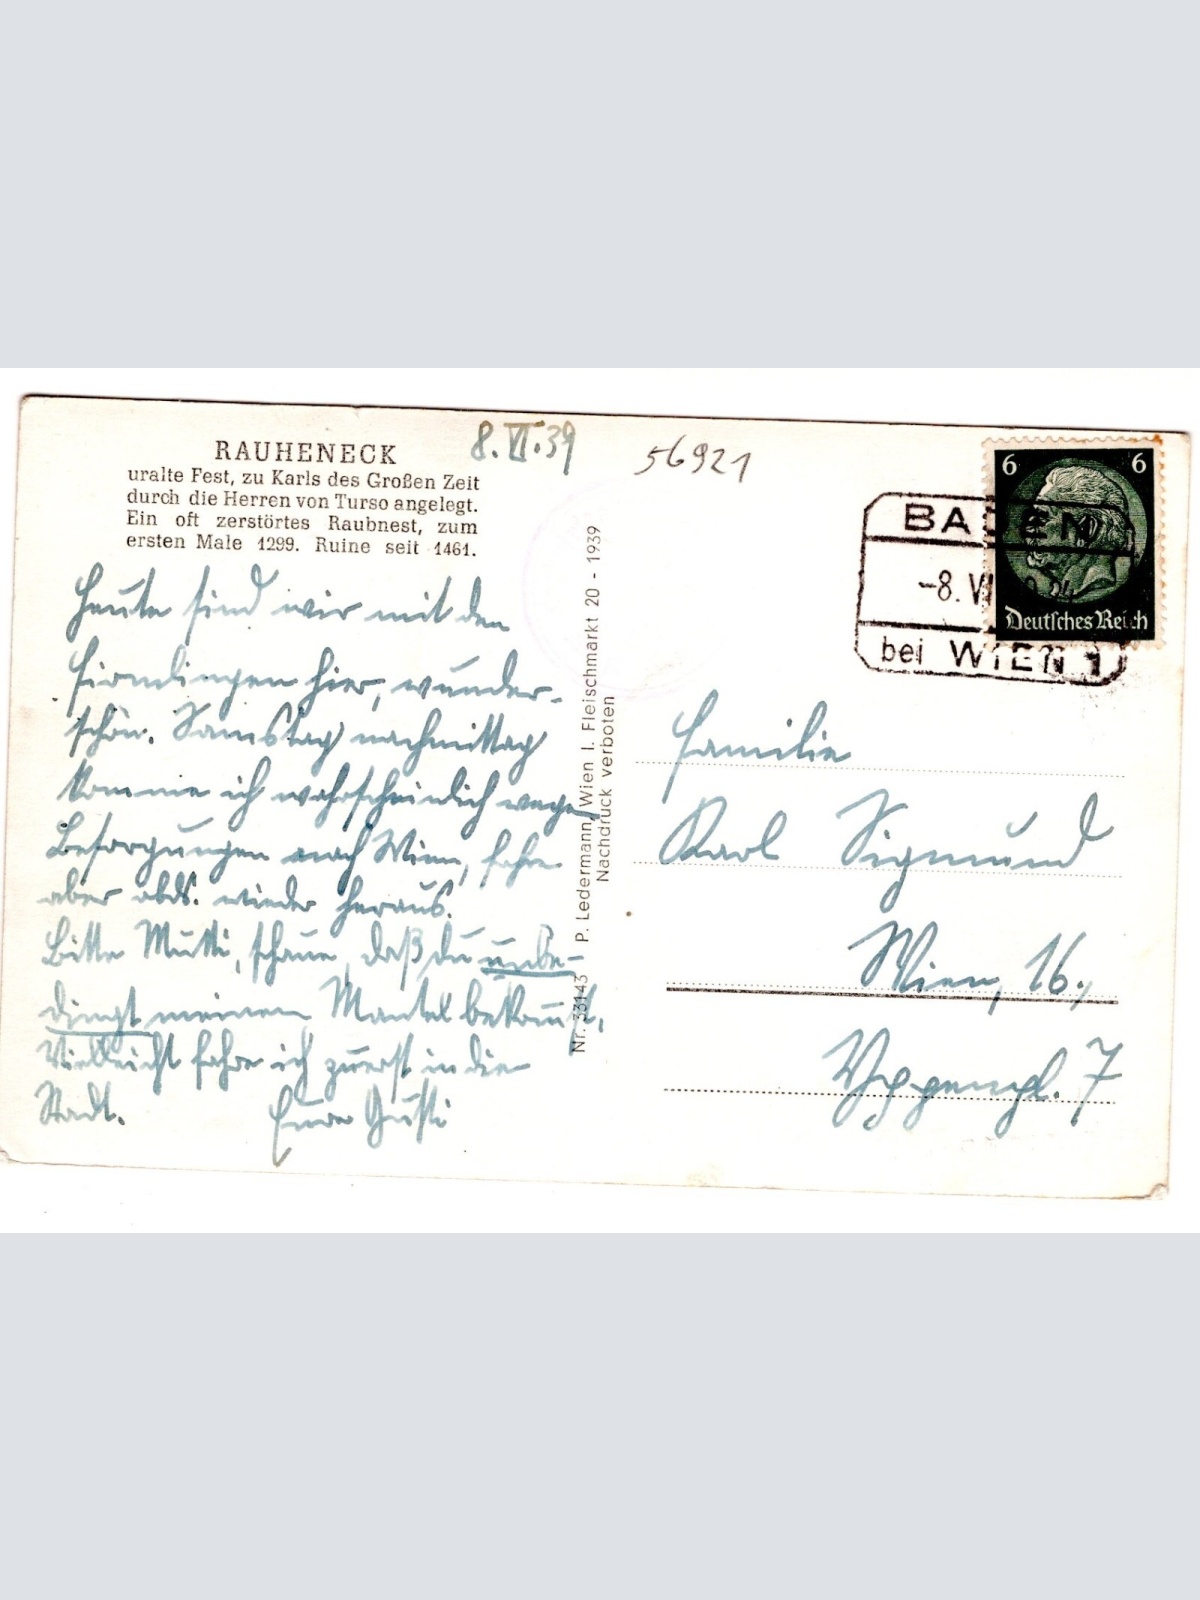 RAUHENECK
uralte Fest, zu Karls des Großen Zeit
durch die Herren von Turso angelegt.
Ein oft zerstörtes Raubnest, zum
ersten Male 1299. Ruine seit 1461.
8.VI.39
56921
6 6
Deutsches Reich
BADEN
-8.VI
bei WIEN 1
Heute sind wir mit den
Firmlingen hier, wunder-
schön. Samstag nachmittag
komme ich wahrscheinlich wegen
Besorgungen nach Wien, fahre
aber abds. wieder heraus.
Bitte Mutti, schaue, daß du unbe-
dingt meinen Mantel bekommst,
Vielleicht fahre ich zuerst in die
Stadt. Eure Gusti
Nr. 33143 P. Ledermann, Wien I. Fleischmarkt 20 - 1939
Nachdruck verboten
Familie
Karl Sigmund
Wien, 16.,
7